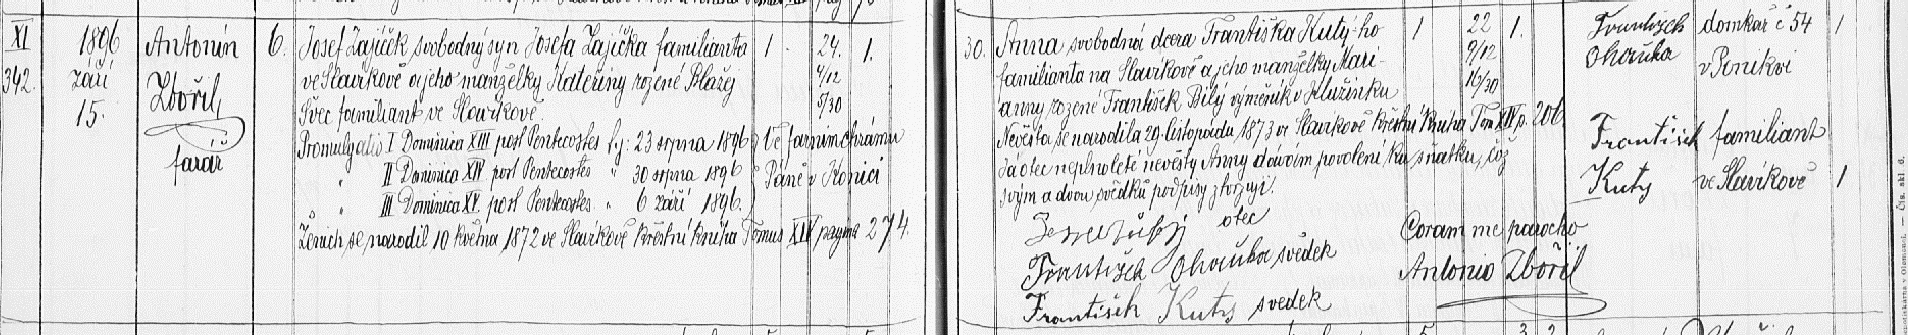 XI 1896 Antonín 6. Josef Zajíček svobodný syn Josefa Zajíčka familianta 1 24. 1.
342. září Zbořil, ve Slavíkově a jeho manželky Kateřiny rozené Blažej 4/12
15. farář Švec familiant ve Slavíkově. 5/30
Promulgatio I Dominica XIII post Pentecostes f. j. 23 srpna 1896 Ve farním chrámu
" II Dominica XIV post Pentecostes " 30 srpna 1896 Páně v Konici
" III Dominica XV. post Pentecostes " 6 září 1896.
Ženich se narodil 10 května 1872 ve Slavíkově Křestní kniha Tomus XIV pagina 274.
30. Anna svobodná dcera Františka Kutý-ho 1 22 1. František domkář č 54 1
familianta na Slavíkově a jeho manželky Mari- 9/12 Ohoružka v Penikvi
anny rozené František Bílý výměník v Klužínku 16/30
Nevěsta se narodila 29 listopadu 1873 ve Slavíkově Křestní Kniha Tom XIV p. 206.
Já otec neplnoleté nevěsty Anny dávám povolení ku sňatku, což František familiant
svým a dvou svědků podpisy ztvrzuji. Kuty ve Slavíkově 1
otec Coram me parocho
František svědek Antonio Zbořil
František Kuty svedek